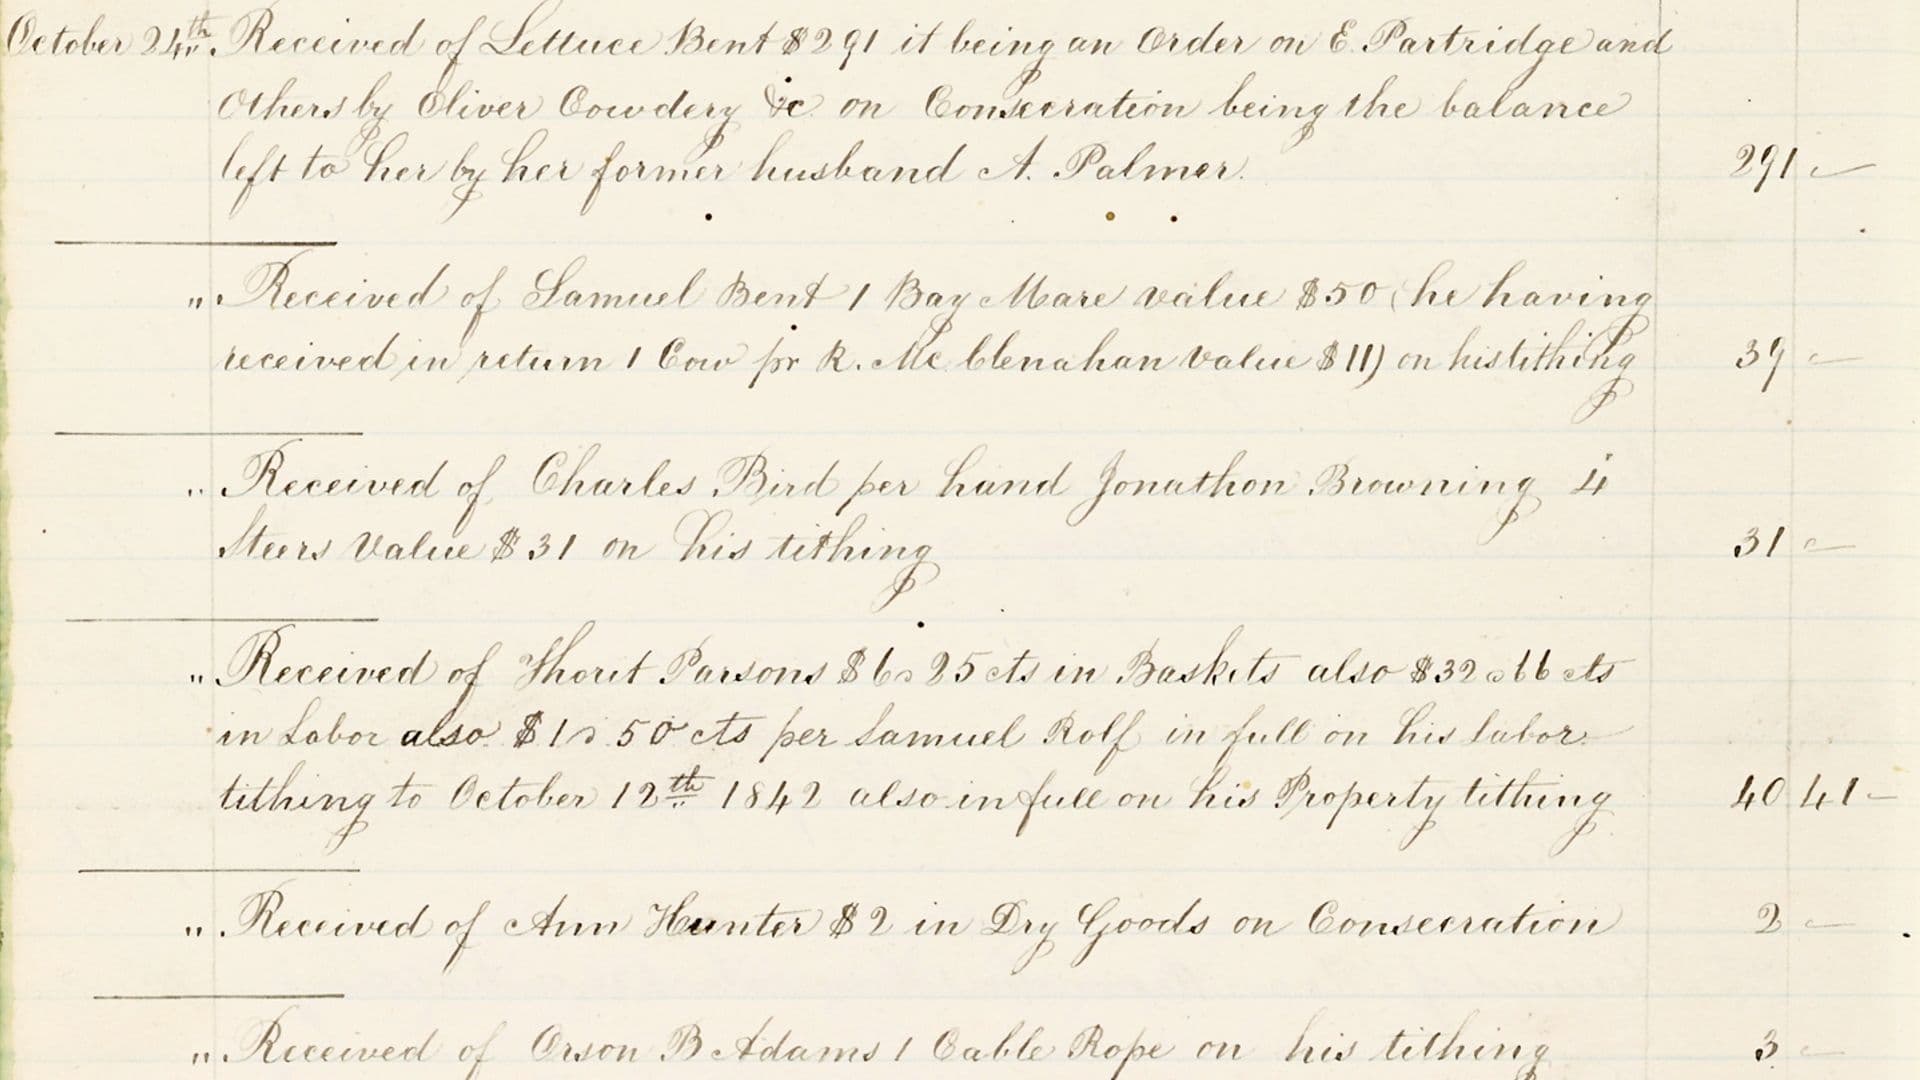 October 24th. Received of Lettuce Bent $291 it being an Order on E. Partridge and
Others by Oliver Cowdery &c on Consecration being the balance
left to her by her former husband A. Palmer. 291 -
" Received of Samuel Bent 1 Bay Mare value $50 (he having
received in return 1 Cow pr R. Mc.Clenahan value $11) on his tithing 39 -
" Received of Charles Bird per hand Jonathon Browning 4
Steers Value $31 on his tithing 31 -
" Received of Thorit Parsons $6.25 cts in Baskets also $32.66 cts
in Labor also $1.50 cts per Samuel Rolf in full on his labor
tithing to October 12th 1842 also in full on his Property tithing 40 41 -
" Received of Ann Hunter $2 in Dry Goods on Consecration 2 -
" Received of Orson B Adams 1 Cable Rope on his tithing 3 -